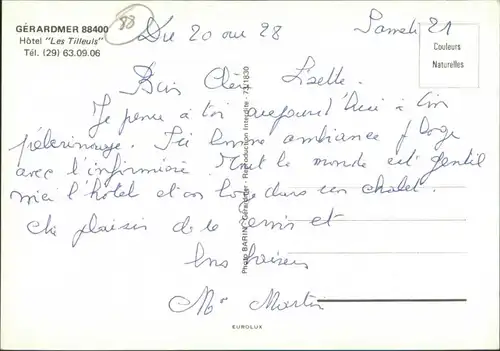 GÉRARDMER 88400
Hôtel "Les Tilleuls"
Tél. (29) 63.09.06
88
Du 20 au 28
Samedi 21
Couleurs
Naturelles
Bien Chère Liselle.
Je pense à toi aujourd'hui à
pélerinage. Ici bonne ambiance je loge
avec l'infirmière. Tout le monde est gentil
ici l'hotel et on loge dans un chalet.
plaisir de te revoir et
bons baisers
Mme Martin
Photo BARIN - Gérardmer - Reproduction Interdite - 73/1830
EUROLUX